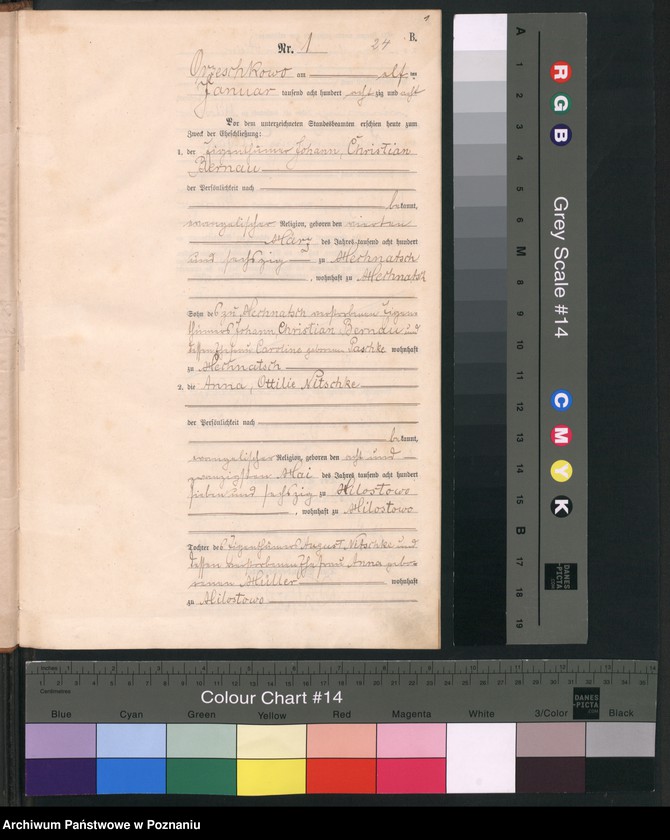 1.
B.
Nr. 1 24
Orzeschkowo am elf ten
Januar tausend acht hundert achtzig und acht
Vor dem unterzeichneten Standesbeamten erschien heute zum
Zweck der Eheschließung:
1. der Eigenthümer Johann, Christian
Bernau
der Persönlichkeit nach
bekannt,
evangelischer Religion, geboren den vierten
März des Jahres tausend acht hundert
und sechszig zu
, wohnhaft zu
Sohn des zu verstorbenen Eigen
thümers Johann, Christian Bernau und
dessen Ehefrau Caroline geborenen Paschke wohnhaft
zu
2. die Anna, Ottilie Nitschke
der Persönlichkeit nach
bekannt,
evangelischer Religion, geboren den acht und
zwanzigsten Mai des Jahres tausend acht hundert
sieben und sechszig zu Milostowo
, wohnhaft zu Milostowo
Tochter des Eigenthümers August Nitschke und
dessen verstorbenen Ehefrau Anna gebo
renen Müller wohnhaft
zu Milostowo
Grey Scale #14
A 1 2 3 4 5 6 M 8 9 10 11 12 13 14 15 B 17 18 19
R G B
C M Y K
DANES
-PICTA
.COM
Inches 1 2 3 4 5 6 7 8 9 10 11 12 13 14
Centimetres
Colour Chart #14
DANES
-PICTA
.COM
Blue Cyan Green Yellow Red Magenta White 3/Color Black
Archiwum Państwowe w Poznaniu